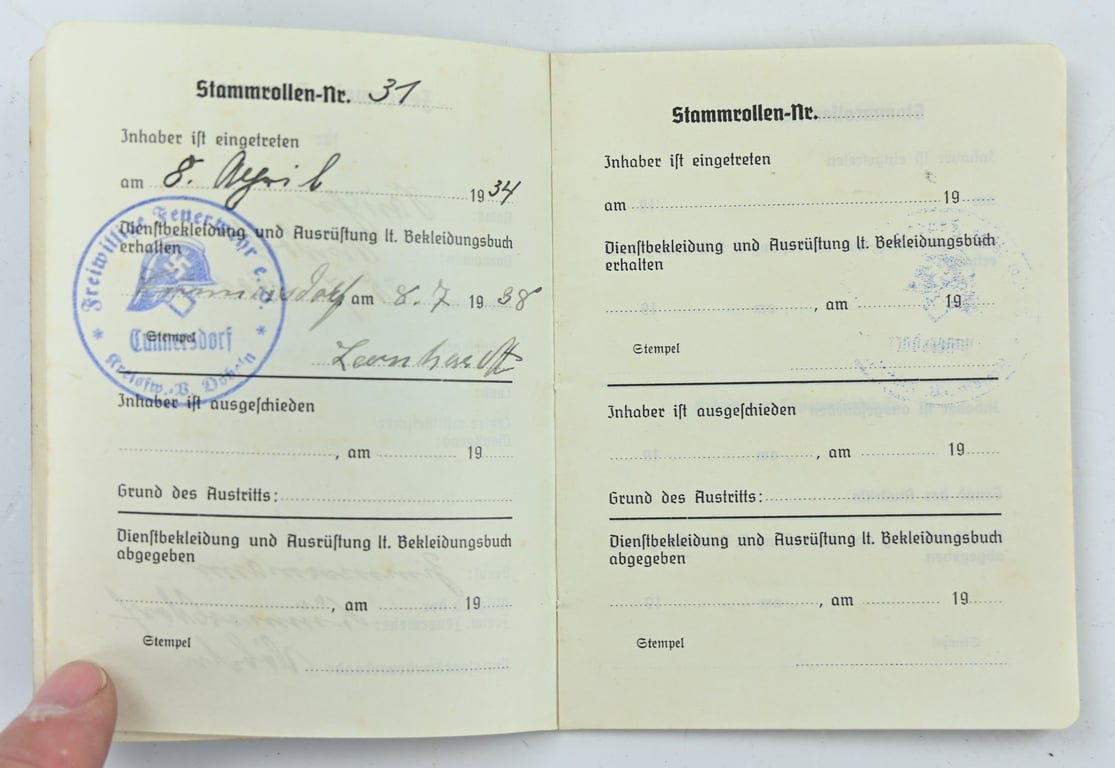 Stammrollen-Nr. 31
Inhaber ist eingetreten
am 8. April 1934
Dienstbekleidung und Ausrüstung lt. Bekleidungsbuch
erhalten
Cunnersdorf am 8.7 1938
Stempel
Leonhardt
Freiwillige Feuerwehr e.V.
Cunnersdorf
Inhaber ist ausgeschieden
, am 19
Grund des Austritts:
Dienstbekleidung und Ausrüstung lt. Bekleidungsbuch
abgegeben
, am 19
Stempel
Stammrollen-Nr.
Inhaber ist eingetreten
am 19
Dienstbekleidung und Ausrüstung lt. Bekleidungsbuch
erhalten
, am 19
Stempel
Inhaber ist ausgeschieden
, am 19
Grund des Austritts:
Dienstbekleidung und Ausrüstung lt. Bekleidungsbuch
abgegeben
, am 19
Stempel